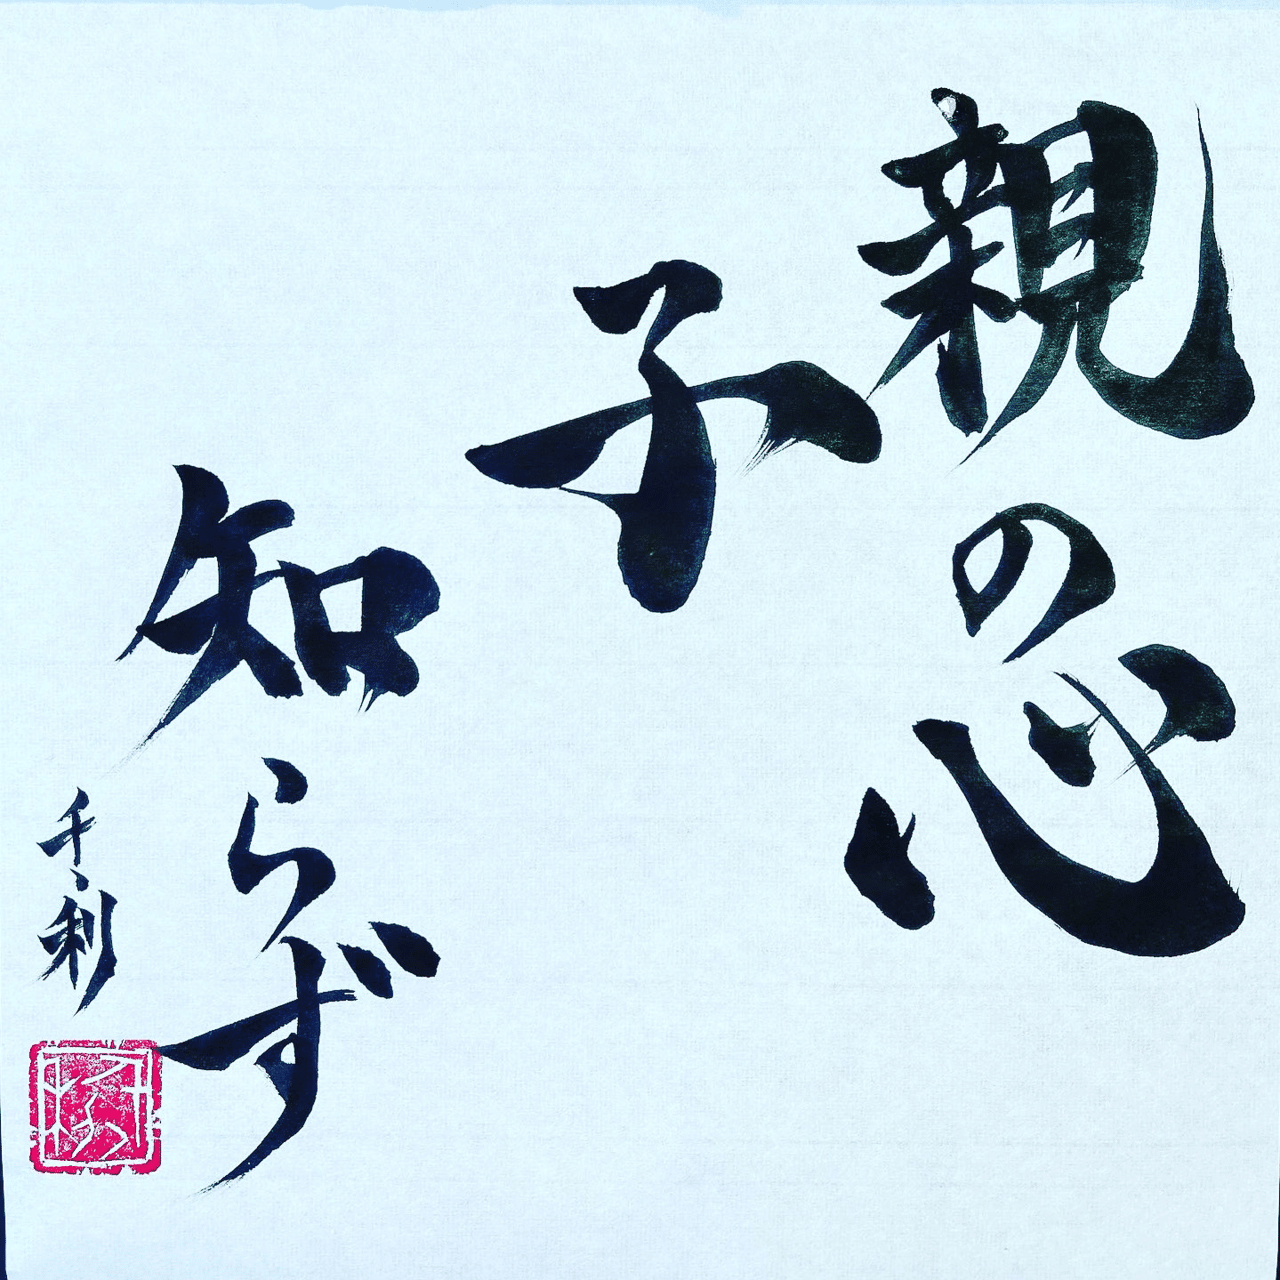 親の心
子
知らず
千利